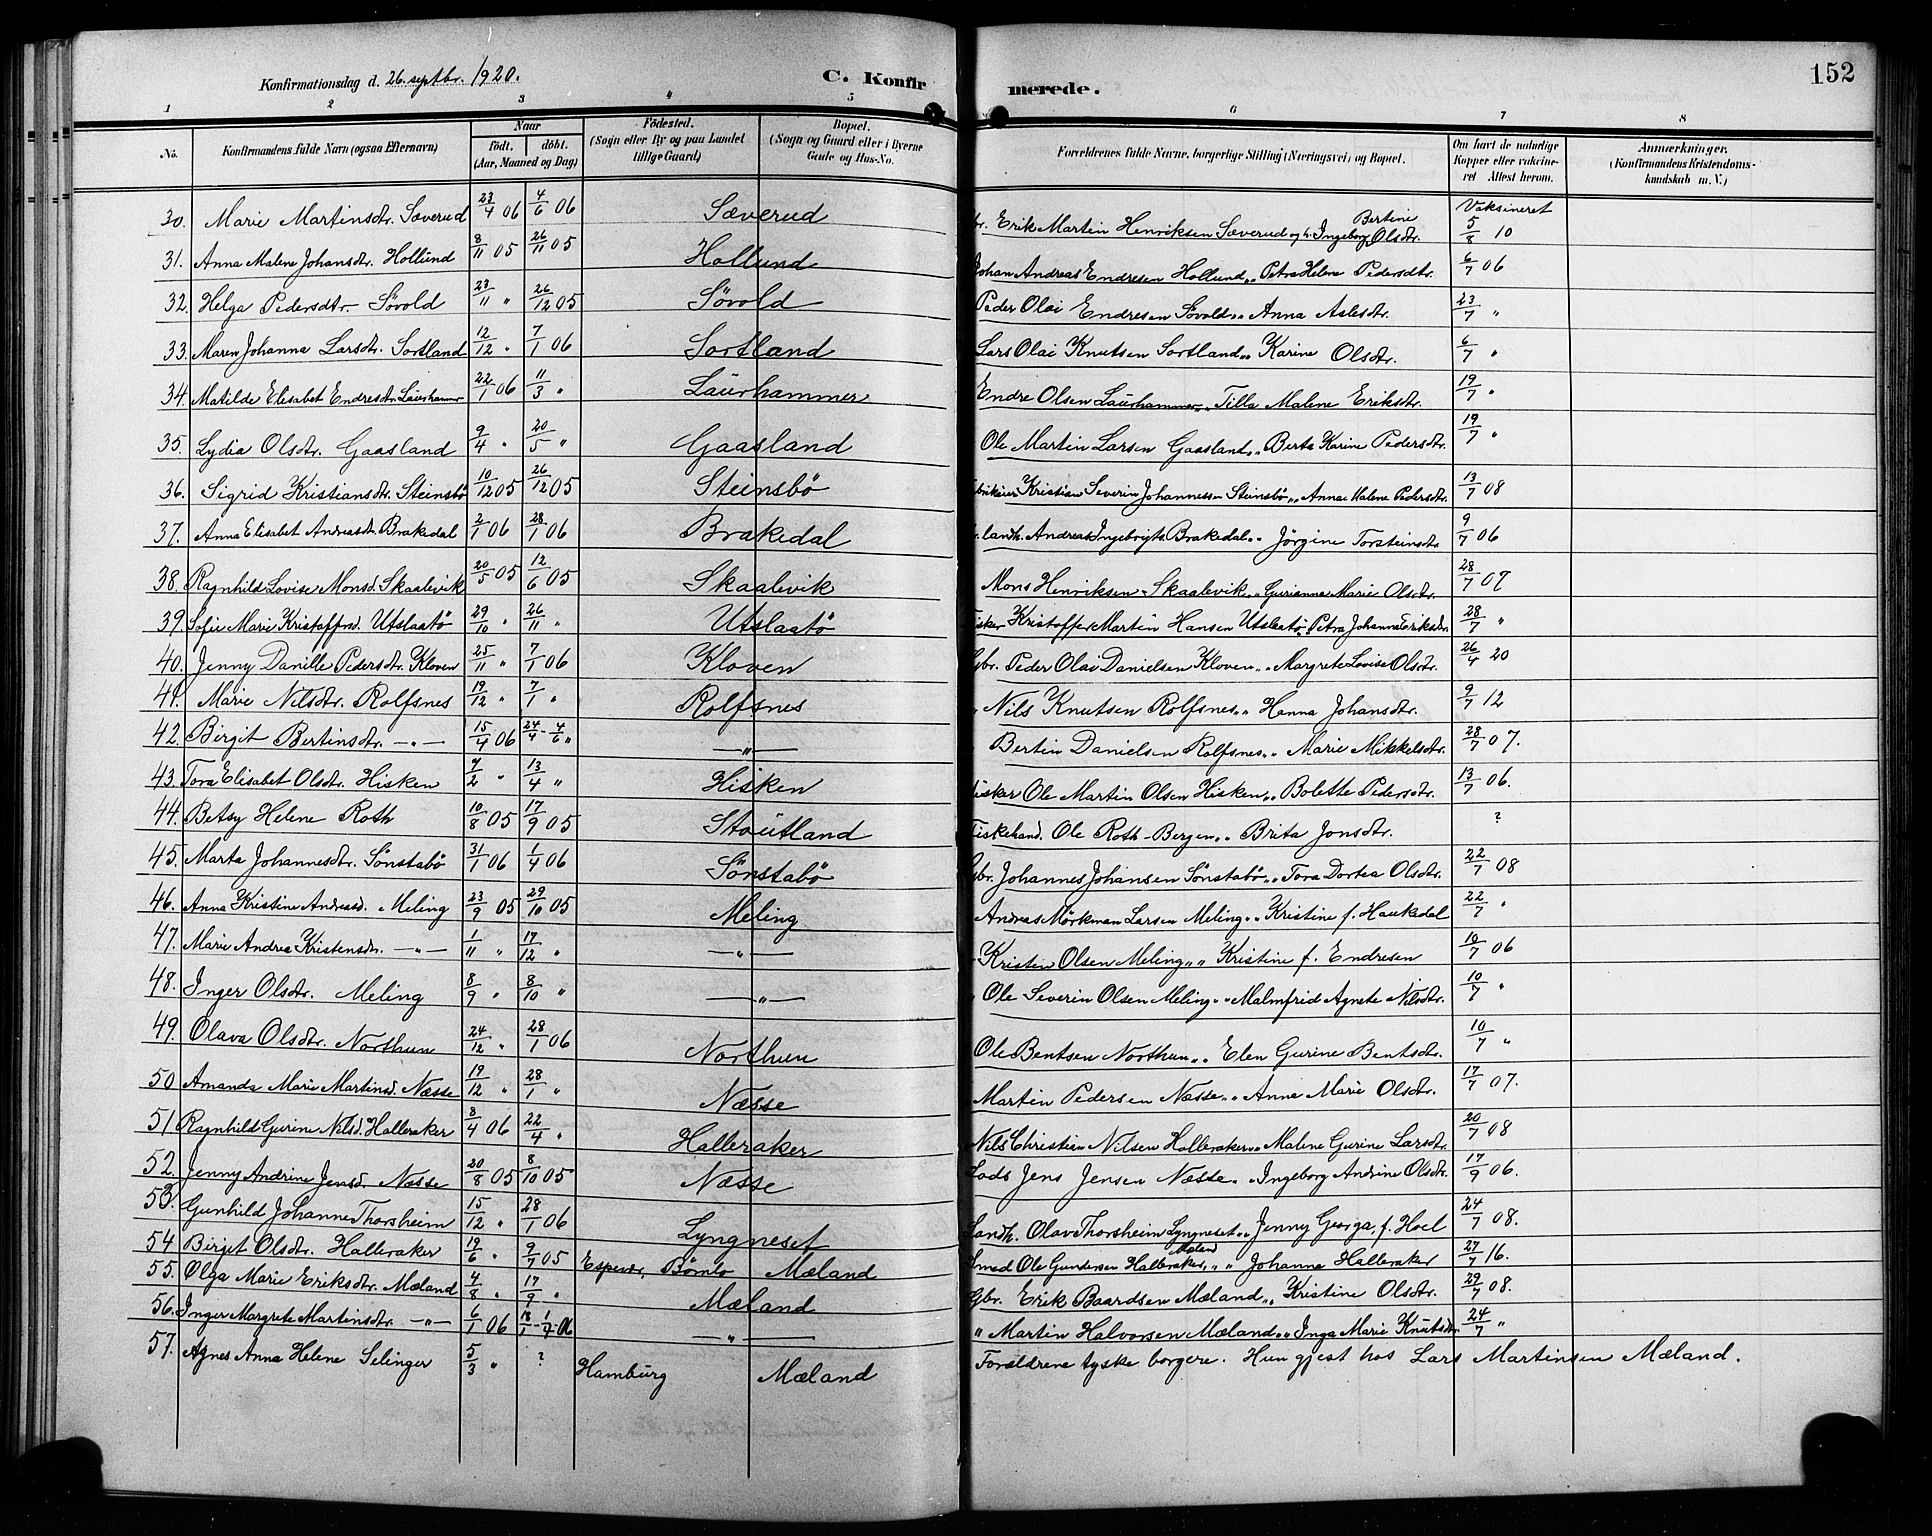 Konfirmationsdag d. 26. septbr. 1920. C. Konfirmerede. 152
1 2 3 4 5 6 7 8
No. Konfirmandens fulde Navn (ogsaa Efternavn) Naar födt. döbt. (Aar, Maaned og Dag) Födested. (Sogn eller By og paa Landet tillige Gaard) Bopæl. (Sogn og Gaard eller i Byerne Gade og Hus-No. Forældrenes fulde Navne, borgerlige Stilling (Næringsvei) og Bopæl. Om havt de naturlige Kopper eller vakcineret Attest herom. Anmærkninger. (Konfirmandens Kristendomskundskab m. V.)
30. Marie Martinsdtr. Sæverud 23/4 06 4/6 06 Sæverud Erik Martin Henriksen Sæverud og h. Ingeborg Bertine Olsdtr. Vaksineret 5/8 10
31. Anna Malene Johansdtr. Hollund 8/11 05 26/11 05 Hollund Johan Andreas Endresen Hollund „ Petra Helene Pedersdtr. 6/7 06
32. Helga Pedersdtr. Sövold 23/11 „ 26/12 05 Sövold Peder Olai Endresen Sövold „ Anna Aslesdtr. 23/7 „
33. Maren Johanna Larsdtr. Sortland 12/12 „ 7/1 06 Sortland Lars Olai Knutsen Sortland „ Karine Olsdtr. 6/7 „
34. Matilde Elisabet Endresdtr. Laurhammer 22/1 06 11/3 „ Laurhammer Endre Olsen Laurhammer „ Tilla Malene Eriksdtr. 19/7 „
35. Lydia Olsdtr. Gaasland 9/4 „ 20/5 „ Gaasland Ole Martin Larsen Gaasland „ Berta Karine Pedersdtr. 19/7 „
36. Sigrid Kristiansdtr. Steinsbö 10/12 05 26/12 05 Steinsbö Kristian Severin Johannessen Steinsbö „ Anna Malene Pedersdtr. 13/7 08
37. Anna Elisabet Andreasdtr. Brakedal 2/1 06 28/1 06 Brakedal landh. Andreas Ingebrigts. Brakedal „ Jörgine Torsteinsdtr. 9/7 06
38. Ragnhild Lovise Monsd. Skaalevik 20/5 05 12/6 05 Skaalevik Mons Henriksen Skaalevik „ Gurianna Marie Olsdtr. 28/7 07
39. Sofie Marie Kristoffersd. Utslaatö 29/10 „ 26/11 „ Utslaatö Fisker Kristoffer Martin Hansen Utslaatö „ Petra Johanna Eriksdtr. 28/7 „
40. Jenny Danille Pedersdtr. Kloven 25/11 „ 7/1 06 Kloven Gbr. Peder Olai Danielsen Kloven „ Margrete Lovise Olsdtr. 26/4 20
41. Marie Nilsdtr. Rolfsnes 19/12 „ 7/1 „ Rolfsnes „ Nils Knutsen Rolfsnes „ Hanna Johansdtr. 9/7 12
42. Birgit Bertinsdtr. —„— 15/4 06 24/4 - 4/6 „ —„— Bertin Danielsen Rolfsnes „ Marie Mikkelsdtr. 28/7 07.
43. Tora Elisabet Olsdtr. Hisken 7/2 „ 13/4 „ Hisken Fisker Ole Martin Olsen Hisken „ Bolette Pedersdtr. 13/7 06.
44. Betsy Helene Roth 10/8 05 17/9 05 Stoutland Fiskehand. Ole Roth - Bergen „ Brita Jonsdtr. ?
45. Marta Johannesdtr. Sönstabö 31/1 06 1/4 06 Sönstabö Gbr. Johannes Johansen Sönstabö „ Tora Dortea Olsdtr. 22/7 08
46. Anna Kristine Andreasd. Meling 23/9 05 29/10 05 Meling Andreas Mörkman Larsen Meling „ Kristine f. Haukedal 22/7 „
47. Marie Andrea Kristensdtr. —„— 1/11 „ 17/12 „ —„— Kristen Olsen Meling „ „ Kristine f. Endresen 10/7 06
48. Inger Olsdtr. Meling 8/9 „ 8/10 „ —„— „ Ole Severin Olsen Meling „ Malmfrid Agnete Nilsdtr. 10/7 „
49. Olava Olsdtr. Northun 24/12 „ 28/1 06 Northun Ole Bentsen Northun „ Elen Gurine Bentsdtr. 10/7 „
50. Amanda Marie Martinsd. Næsse 19/12 „ 28/1 „ Næsse Martin Pedersen Næsse „ Anna Marie Olsdtr. 17/7 07.
51. Ragnhild Gurine Nilsd. Halleraker 8/4 06 22/4 „ Halleraker Nils Christian Nilsen Halleraker „ Malene Gurine Larsdtr. 20/7 08
52. Jenny Andrine Jensd. Næsse 20/8 05 8/10 05 Næsse Lods Jens Jensen Næsse „ Ingeborg Andrine Olsdtr. 17/9 06.
53. Gunhild Johanne Thorsheim 15/12 „ 28/1 06 Lyngneset Landh. Olav Thorsheim Lyngneset „ Jenny Georga, f. Hoel 24/7 08.
54. Birjet Olsdtr. Halleraker 19/6 „ 9/7 05 Espevær, Bömlo Mæland Smed Ole Gundersen Halleraker, Mæland „ „ Johanna Halleraker 27/7 16.
55. Olga Marie Eriksdtr. Mæland 4/8 „ 17/9 „ Mæland Gbr. Erik Baardsen Mæland „ Kristine Olsdtr. 29/7 08.
56. Inger Margrete Martinsdtr. —„— 6/1 06 18/1 - 1/7 06 —„— „ Martin Halvorsen Mæland „ Inga Marie Knutsdtr. 24/7 „
57. Agnes Anna Helene Selinger 5/3 „ ? Hamburg Mæland Forældrene tyske borgere. Hun gjest hos Lars Martinsen Mæland.